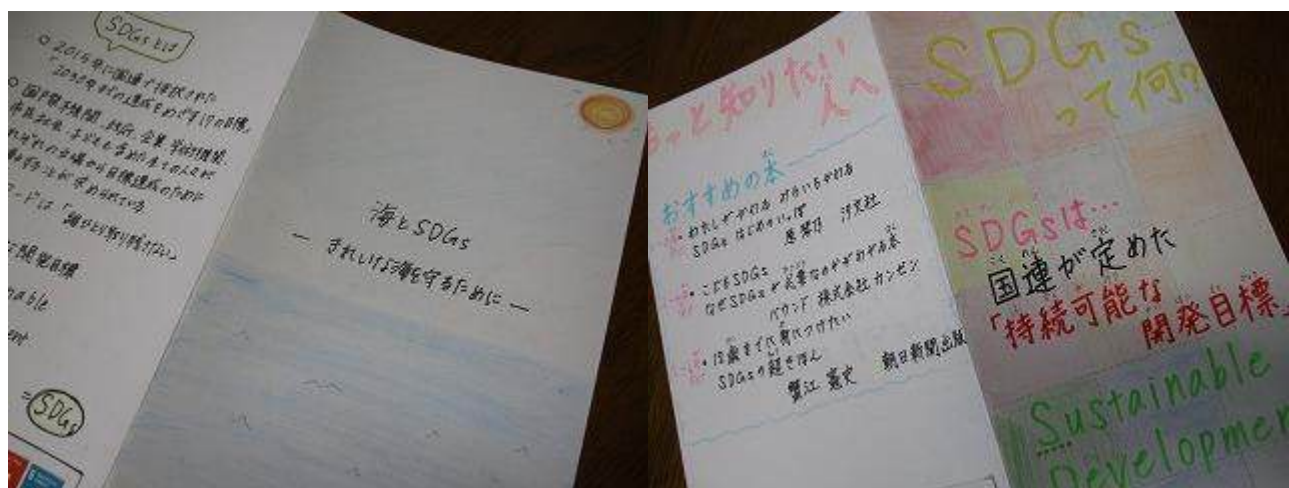 SDGsとは
○ 2015年に国連で採択された
「2030年までの達成をめざす17の目標」
○ 国際機関、政府、企業、学術機関、
市民社会、子どもも含めた全ての人が
それぞれの立場から目標達成のために
ことが求められている
ードは「誰ひとり取り残さない」
開発目標
nable
ent
=SDGs
海とSDGs
― きれいな海を守るために ―
っと知りたい!
人へ
おすすめの本
わたしがかわる みらいもかわる
SDGs はじめのいっぽ
汐文社
・こどもSDGs
なぜSDGsが必要なのかがわかる本
バウンド 株式会社カンゼン
・12歳までに身につけたい
SDGsの超きほん
蟹江 憲史 朝日新聞出版
SDGs
って何?
SDGsは…
国連が定めた
「持続可能な
開発目標」
Sustainable
Developmen